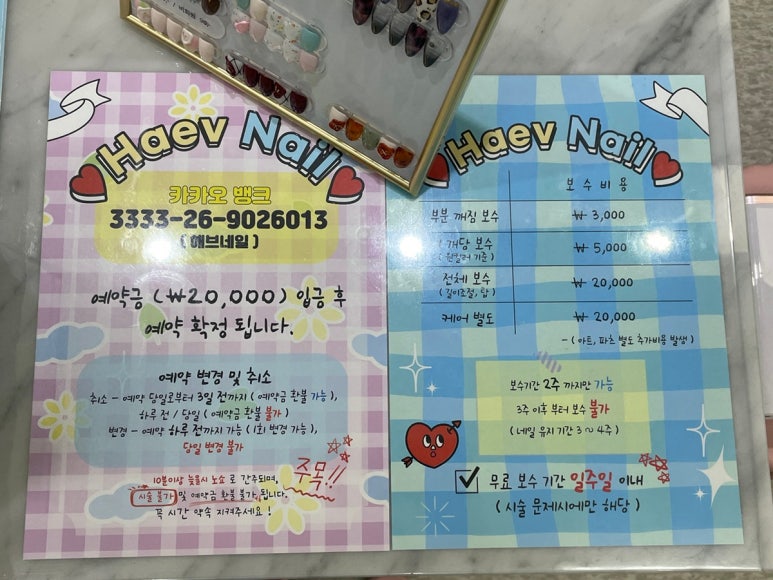 Haev Nail
카카오 뱅크
3333-26-9026013
( 해브네일 )
예약금 (₩20,000) 입금 후
예약 확정 됩니다.
예약 변경 및 취소
취소 - 예약 당일로부터 3일 전까지 ( 예약금 환불 가능 ),
하루 전 / 당일 ( 예약금 환불 불가 )
변경 - 예약 하루 전까지 가능 ( 1회 변경 가능 ),
당일 변경 불가
주목!!
10분이상 늦을시 노쇼 로 간주되며,
시술 불가 및 예약금 환불 불가 됩니다.
꼭 시간 약속 지켜주세요 !
Haev Nail
보수 비용
부분 깨짐 보수 ₩ 3,000
개당 보수 ₩ 5,000
( 원컬러 기준 )
전체 보수 ₩ 20,000
( 길이조절, 탑 )
케어 별도 ₩ 20,000
- ( 아트, 파츠 별도 추가비용 발생 )
보수기간 2주 까지만 가능
3주 이후 부터 보수 불가
( 네일 유지 기간 3 ~ 4주 )
무료 보수 기간 일주일 이내
( 시술 문제시에만 해당 )